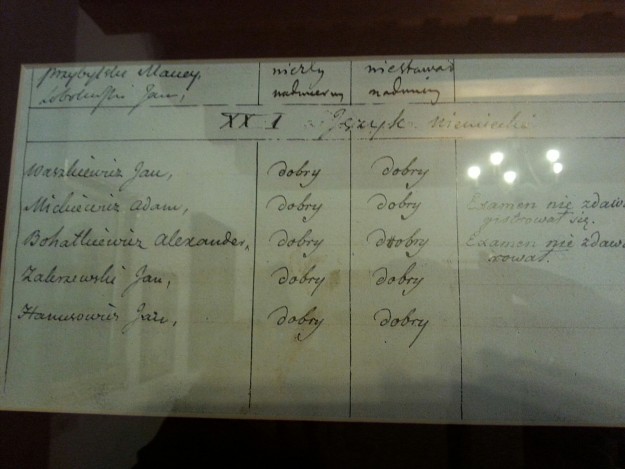 Przybylski Maciej, niezły niestawał
Jan,
XX I Język Niemiecki
Waszkiewicz Jan, dobry dobry
Mickiewicz Adam, dobry dobry Examen nie zdawa
gistrował się.
Bohatkiewicz Alexander, dobry dobry Examen nie zdaw
rował.
Zakrzewski Jan, dobry dobry
Hanusowicz Jan, dobry dobry